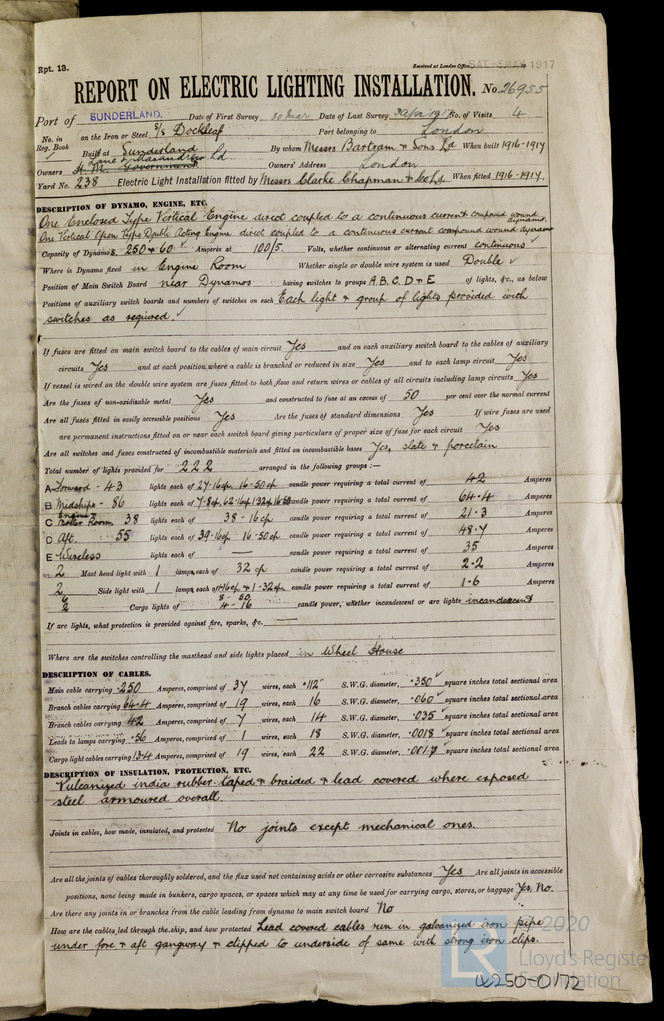 Rpt. 13.
Received at London Office SAT. 5 MAY 1917
REPORT ON ELECTRIC LIGHTING INSTALLATION. No. 26955
Port of SUNDERLAND. Date of First Survey 30 Mar Date of Last Survey 3 Apr 1917 No. of Visits 4
No. in Reg. Book on the Iron or Steel S/S Dockleaf Port belonging to London
Built at Sunderland By whom Messrs Bartram & Sons Ld When built 1916-1917
Owners H. M. Government Lane & Ld Owners' Address London
Yard No. 238 Electric Light Installation fitted by Messrs Clarke Chapman & Co Ld When fitted 1916-1917.
DESCRIPTION OF DYNAMO, ENGINE, ETC.
One Enclosed Type Vertical Engine direct coupled to a continuous current compound wound dynamo.
One Vertical Open Type Double Acting Engine direct coupled to a continuous current compound wound dynamo
Capacity of Dynamos 250 & 60 Amperes at 100/5. Volts, whether continuous or alternating current continuous
Where is Dynamo fixed in Engine Room Whether single or double wire system is used Double
Position of Main Switch Board near Dynamos having switches to groups A, B, C, D & E of lights, &c., as below
Positions of auxiliary switch boards and numbers of switches on each Each light & group of lights provided with
switches as required.
If fuses are fitted on main switch board to the cables of main circuit Yes and on each auxiliary switch board to the cables of auxiliary
circuits Yes and at each position where a cable is branched or reduced in size Yes and to each lamp circuit Yes
If vessel is wired on the double wire system are fuses fitted to both flow and return wires or cables of all circuits including lamp circuits Yes
Are the fuses of non-oxidizable metal Yes and constructed to fuse at an excess of 50 per cent over the normal current
Are all fuses fitted in easily accessible positions Yes Are the fuses of standard dimensions Yes If wire fuses are used
are permanent instructions fitted on or near each switch board giving particulars of proper size of fuse for each circuit Yes
Are all switches and fuses constructed of incombustible materials and fitted on incombustible bases Yes, slate & porcelain
Total number of lights provided for 222 arranged in the following groups :—
A Forward - 43 lights each of 27-16cp, 16-50cp candle power requiring a total current of 42 Amperes
B Midships - 86 lights each of 7-8cp, 62-16cp, 1 32cp, 16 50 candle power requiring a total current of 64.4 Amperes
C Engine & Boiler Room 38 lights each of 38-16cp candle power requiring a total current of 21.3 Amperes
D Aft. 55 lights each of 39-16cp 16-50cp candle power requiring a total current of 48.7 Amperes
E Wireless lights each of — candle power requiring a total current of 35 Amperes
2 Mast head light with 1 lamps each of 32 cp candle power requiring a total current of 2.2 Amperes
2 Side light with 1 lamps each of 1-16cp & 1-32cp candle power requiring a total current of 1.6 Amperes
6 2 Cargo lights of 8-50 4-16 candle power, whether incandescent or arc lights incandescent
If arc lights, what protection is provided against fire, sparks, &c. —
Where are the switches controlling the masthead and side lights placed in Wheel House
DESCRIPTION OF CABLES.
Main cable carrying 250 Amperes, comprised of 37 wires, each .112" S.W.G. diameter, .350 square inches total sectional area
Branch cables carrying 64.4 Amperes, comprised of 19 wires, each 16 S.W.G. diameter, .060 square inches total sectional area
Branch cables carrying 42 Amperes, comprised of 7 wires, each 14 S.W.G. diameter, .035 square inches total sectional area
Leads to lamps carrying .56 Amperes, comprised of 1 wires, each 18 S.W.G. diameter, .0018 square inches total sectional area
Cargo light cables carrying 13.4 Amperes, comprised of 19 wires, each 22 S.W.G. diameter, .0017 square inches total sectional area
DESCRIPTION OF INSULATION, PROTECTION, ETC.
Vulcanized india rubber taped & braided & lead covered where exposed
steel armoured overall.
Joints in cables, how made, insulated, and protected No joints except mechanical ones.
Are all the joints of cables thoroughly soldered, and the flux used not containing acids or other corrosive substances Yes Are all joints in accessible
positions, none being made in bunkers, cargo spaces, or spaces which may at any time be used for carrying cargo, stores, or baggage Yes, No.
Are there any joints in or branches from the cable leading from dynamo to main switch board No
How are the cables led through the ship, and how protected Lead covered cables run in galvanized iron pipe
under fore & aft gangway & clipped to underside of same with strong iron clips.
© 2020
LR Lloyd's Register Foundation
W250-0172